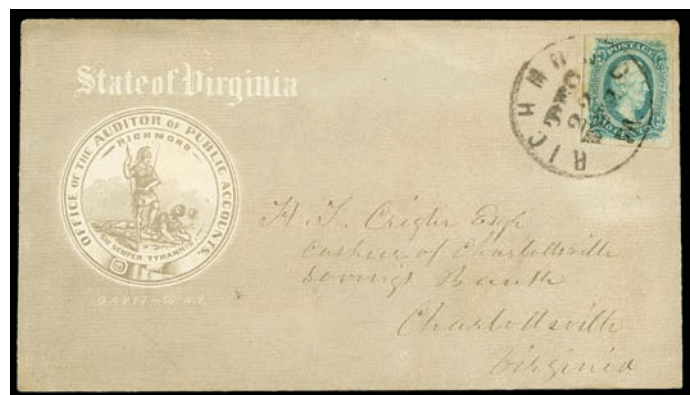 State of Virginia
OFFICE OF THE AUDITOR OF PUBLIC ACCOUNTS.
RICHMOND
SIC SEMPER TYRANNIS
GAVIT & CO N.Y.
RICHMOND
DEC
22
POSTAGE
H. T. Crigler Esqr
Cashier of Charlottsville
Savings Bank
Charlottsville
Virginia